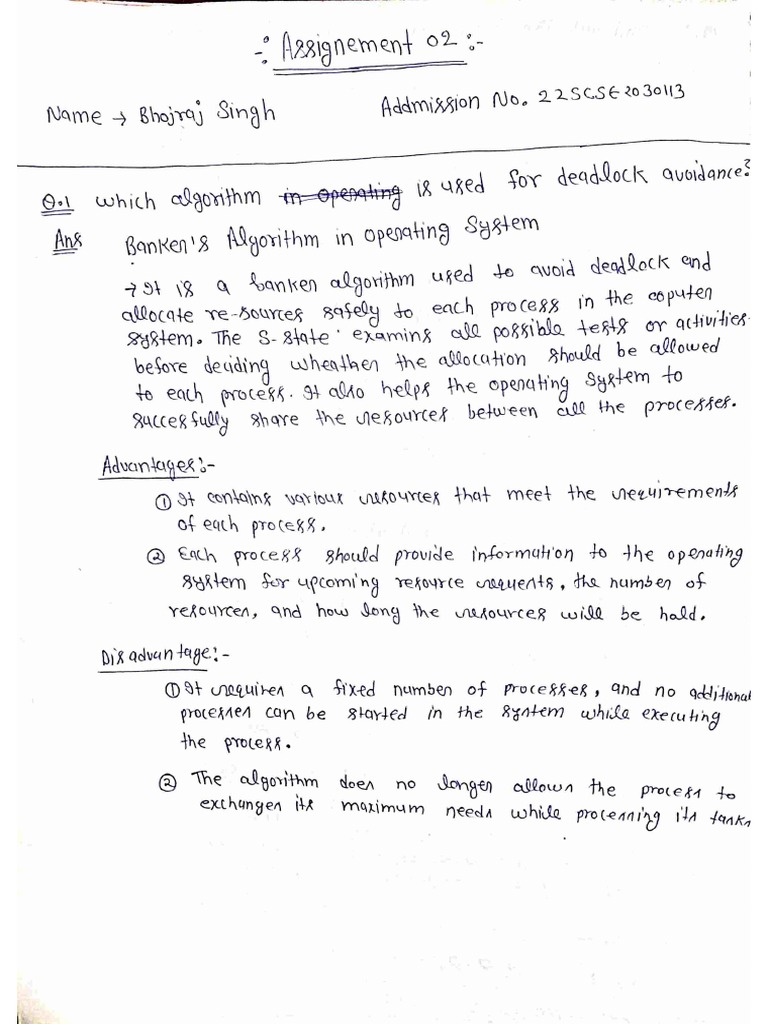 -: Assignement 02 :-
Name → Bhojraj Singh Addmission No. 22SCSE2030113
Q.1 which algorithm in operating is used for deadlock avoidance?
Ans Banker's Algorithm in operating System
→ It is a banker algorithm used to avoid deadlock and
allocate re-sources safely to each process in the coputer
system. The S-state' examins all possible tests or activities
before deciding wheather the allocation should be allowed
to each process. It also helps the operating system to
successfully share the resources between all the processes.
Advantages:-
① It contains various resources that meet the requirements
of each process.
② Each process should provide information to the operating
system for upcoming resource requests, the number of
resources, and how long the resources will be hald.
Disadvantage:-
① It requires a fixed number of processes, and no additional
processes can be started in the system while executing
the process.
② The algorithm does no longer allows the process to
exchanges its maximum needs while processing its tasks